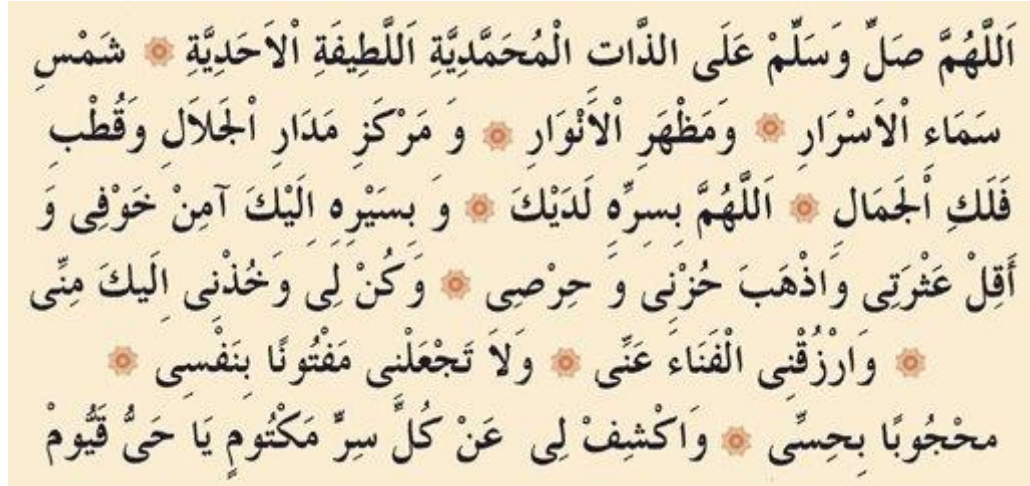 اَللّٰهُمَّ صَلِّ وَسَلِّمْ عَلَى الذَّاتِ الْمُحَمَّدِيَّةِ اَللَّطِيفَةِ اْلاَحَدِيَّةِ ۞ شَمْسِ
سَمَاءِ اْلاَسْرَارِ ۞ وَمَظْهَرِ اْلاَنْوَارِ ۞ وَ مَرْكَزِ مَدَارِ اْلجَلاَلِ وَقُطْبِ
فَلَكِ اْلجَمَالِ ۞ اَللّٰهُمَّ بِسِرِّهِ لَدَيْكَ ۞ وَ بِسَيْرِهِ اِلَيْكَ آمِنْ خَوْفِى وَ
أَقِلْ عَثْرَتِى وَاذْهَبَ حُزْنِى وَ حِرْصِى ۞ وَكُنْ لِى وَخُذْنِى اِلَيكَ مِنِّى
۞ وَارْزُقْنِى الْفَنَاءَ عَنِّى ۞ وَلاَ تَجْعَلْنِى مَفْتُونًا بِنَفْسِى ۞
محْجُوبًا بِحِسِّى ۞ وَاكْشِفْ لِى عَنْ كُلِّ سِرٍّ مَكْتُومٍ يَا حَىُّ قَيُّومْ